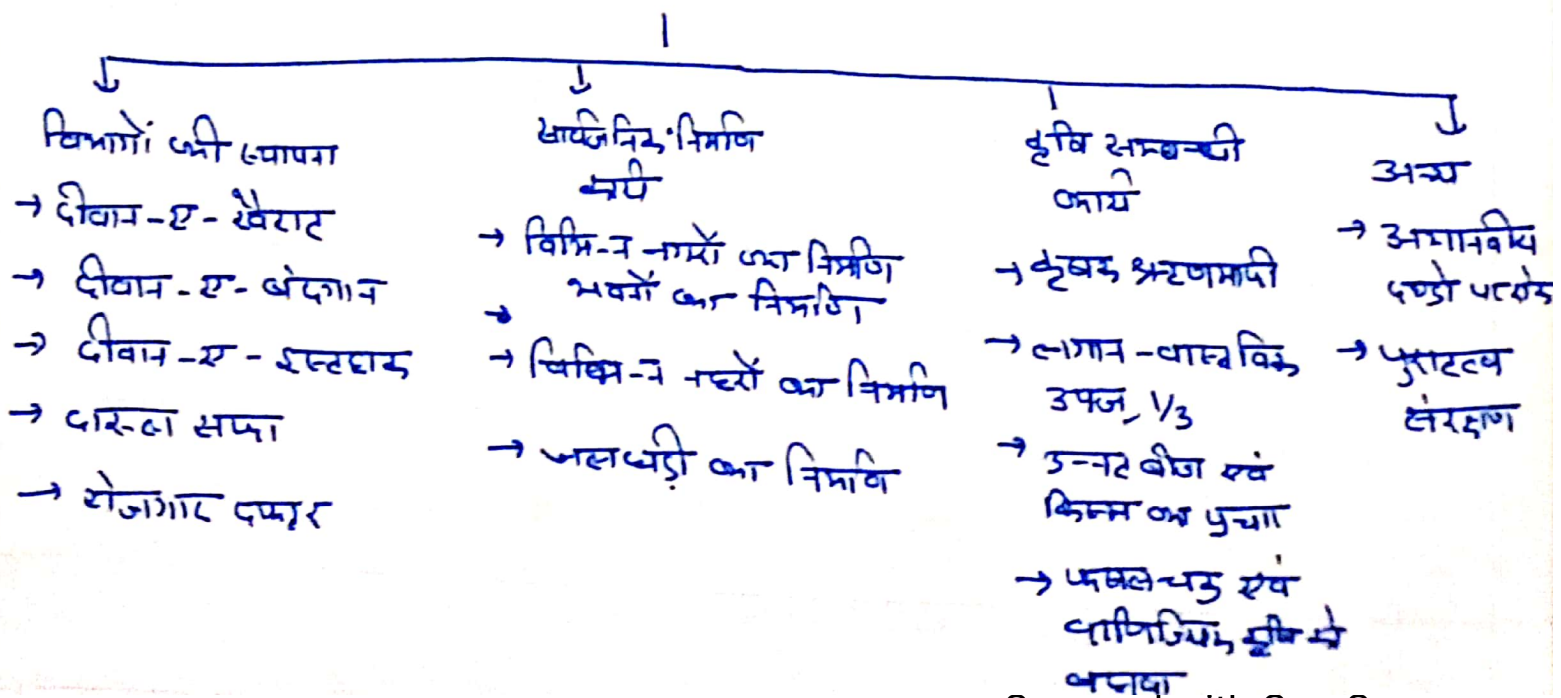 विभागों की स्थापना
→ दीवान-ए-खैरात
→ दीवान-ए-बंदगान
→ दीवान-ए-इस्तहाक
→ दारुल सफा
→ रोजगार दफ्तर
सार्वजनिक निर्माण
कार्य
→ विभिन्न नगरों का निर्माण
→ भवनों का निर्माण
→ विभिन्न नहरों का निर्माण
→ जलघड़ी का निर्माण
कृषि सम्बन्धी
कार्य
→ कृषक ऋणमाफी
→ लगान - वास्तविक
उपज, 1/3
→ उन्नत बीज एवं
किस्म का
→ फसल चक्र एवं
वाणिज्यिक कृषि को
अन्य
→ अमानवीय
दण्डो पर रोक
→ पुरातत्व
संरक्षण